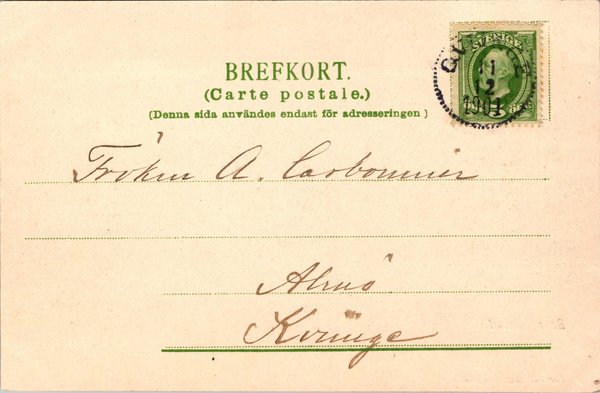 BREFKORT.
(Carte postale.)
(Denna sida användes endast för adresseringen)
SVERIGE
11
2
1901
Fröken A. Carbonnier
Kvinge